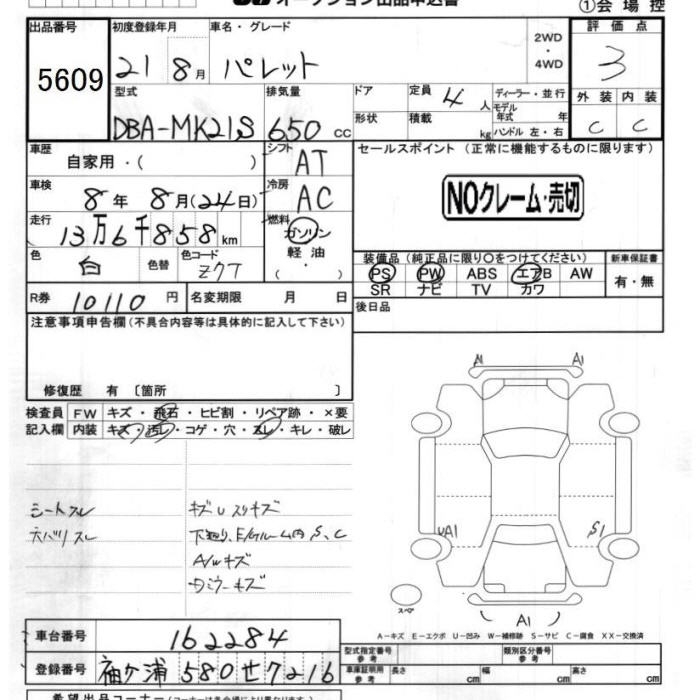 オークション出品申込書
①会場控
出品番号
5609
初度登録年月
21 8月
車名・グレード
パレット
2WD
・
4WD
評価点
3
型式
DBA-MK21S
排気量
650 cc
ドア
形状
定員 4 人
積載 kg
ディーラー・並行
モデル
年式 年
ハンドル 左・右
外装 内装
C C
車歴
自家用・( )
シフト
AT
セールスポイント (正常に機能するものに限ります)
NOクレーム・売切
車検
8年 8月(24日)
冷房
AC
走行
13万6千858km
燃料
ガソリン
軽油
( ・ )
色
白
色替
色コード
Z7T
装備品(純正品に限り○をつけてください)
PS PW ABS エアB AW
SR ナビ TV カワ
新車保証書
有・無
R券 10110 円
名変期限 月 日
後日品
注意事項申告欄(不具合内容等は具体的に記入して下さい)
修復歴 有 〔箇所 〕
検査員 FW キズ・飛石・ヒビ割・リペア跡・×要
記入欄 内装 キズ・汚レ・コゲ・穴・スレ・キレ・破レ
シートスレ
天バリスレ
キズUスリキズ
下廻り、E/gルーム内S、C
A/Wキズ
Dミラーキズ
A1
UA1
S1
A1
スペア
A-キズ E-エクボ U-凹み W-補修跡 S-サビ C-腐食 XX-交換済
車台番号 162284
登録番号 袖ヶ浦 580 せ 7216
型式指定番号
参考
類別区分番号
参考
車庫証明用
参考
長さ cm 幅 cm 高さ cm
希望出品コーナー